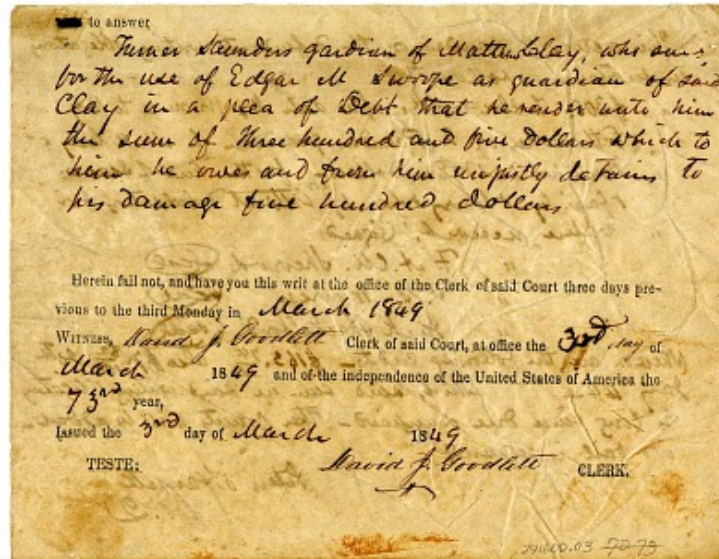 to answer
Turner Saunders gardian of Matthew Clay, who sues
for the use of Edgar M Swoope as guardian of said
Clay in a plea of Debt that he render unto him
the sum of Three hundred and five Dollars which to
him he owes and from him unjustly detains to
his damage five hundred dollars
Herein fail not, and have you this writ at the office of the Clerk of said Court three days pre-
vious to the third Monday in March 1849
Witness, David J. Goodlett Clerk of said Court, at office the 3rd day of
March 1849 and of the independence of the United States of America the
73rd year,
Issued the 3rd day of March 1849
TESTE: David J. Goodlett CLERK.